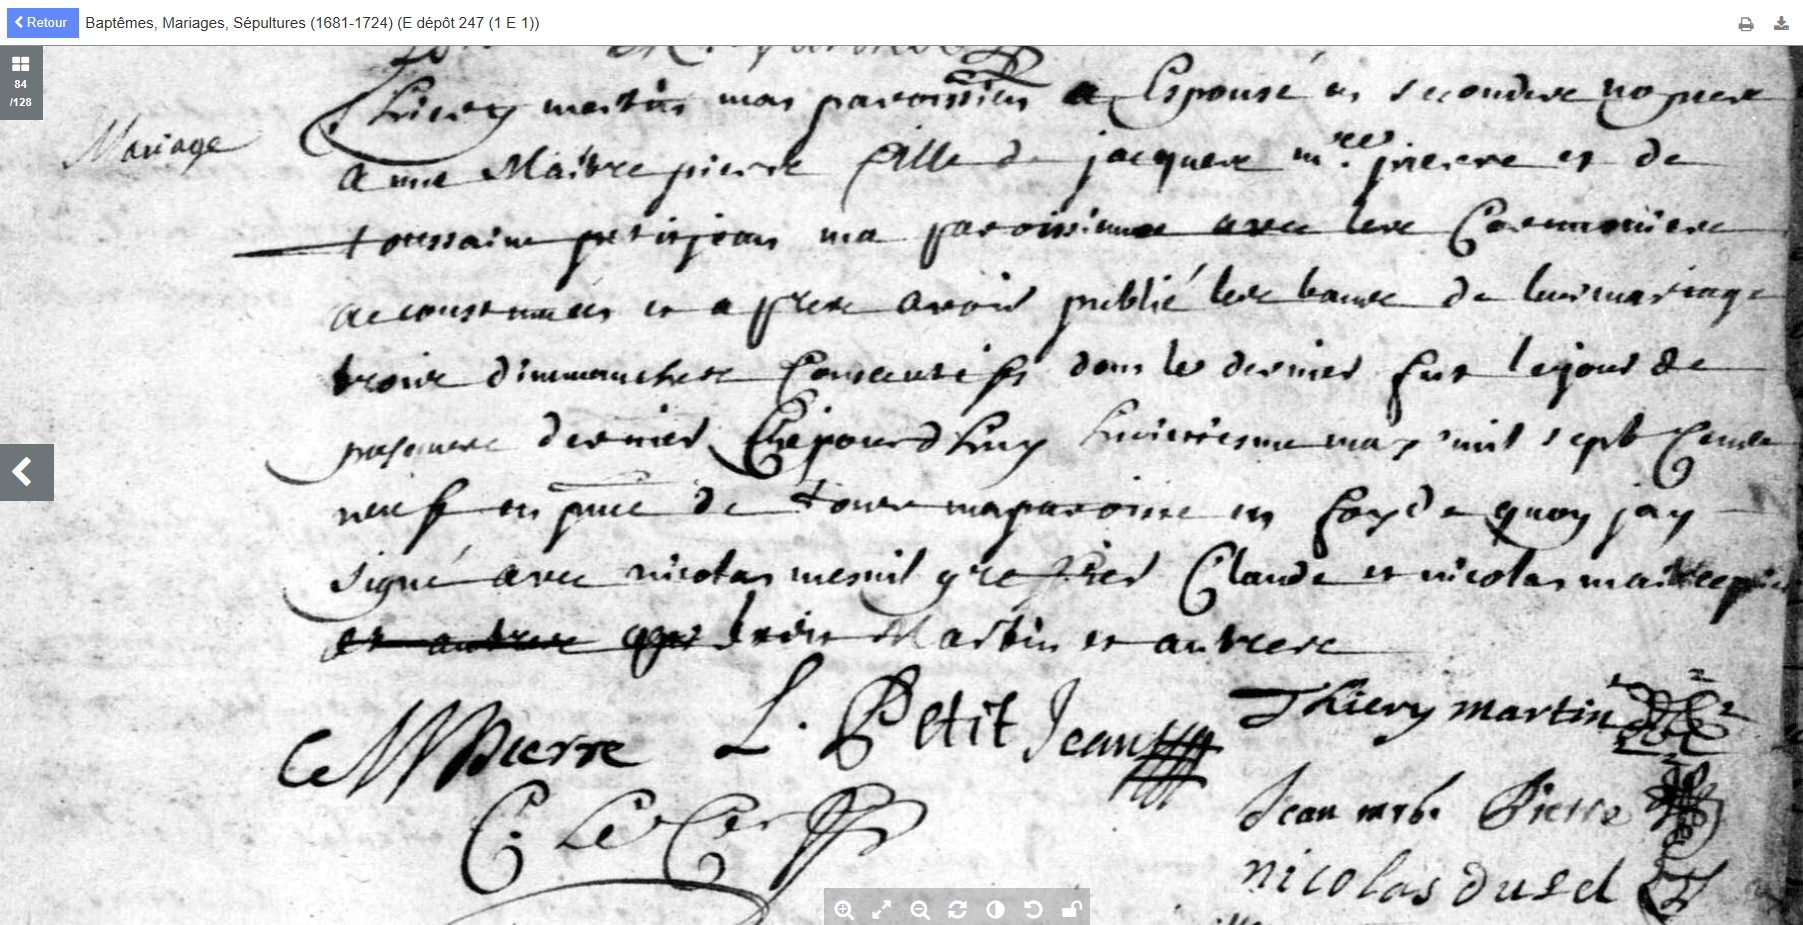 Retour Baptêmes, Mariages, Sépultures (1681-1724) (E dépôt 247 (1 E 1))
84
/128
Mariage
Thiery martin mon paroissien a Espousé en secondes nopces
anne Maitre pierre fille de jacques mre. pierre et de
toussaine petitjean ma paroissienne avec les Ceremonies
accoustumées et apres avoir publié les bans de leur mariage
trois dimmanches Consecutifs dont le dernier fut le jour de
pasques dernier Cejourdhuy huictiesme may mil sept Cents
neuf en pnce de toute ma paroisse en foy de quoy jay
signé avec nicolas mesnil greffier Claude et nicolas maitrepier
et autres Martin et autres
C M Pierre L. Petit Jean Thiery martin
C. Le Cerf Jean Pierre
nicolas